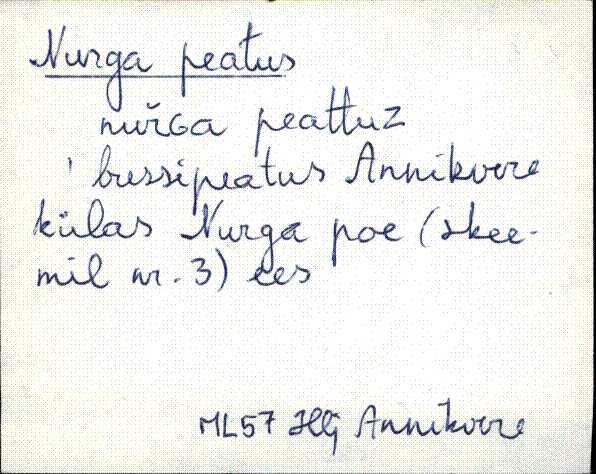 Nurga peatus
nuřGa peattuz
' bussipeatus Annikvere
külas Nurga poe (skee-
mil nr. 3) ees
ML57 Hlj Annikvere